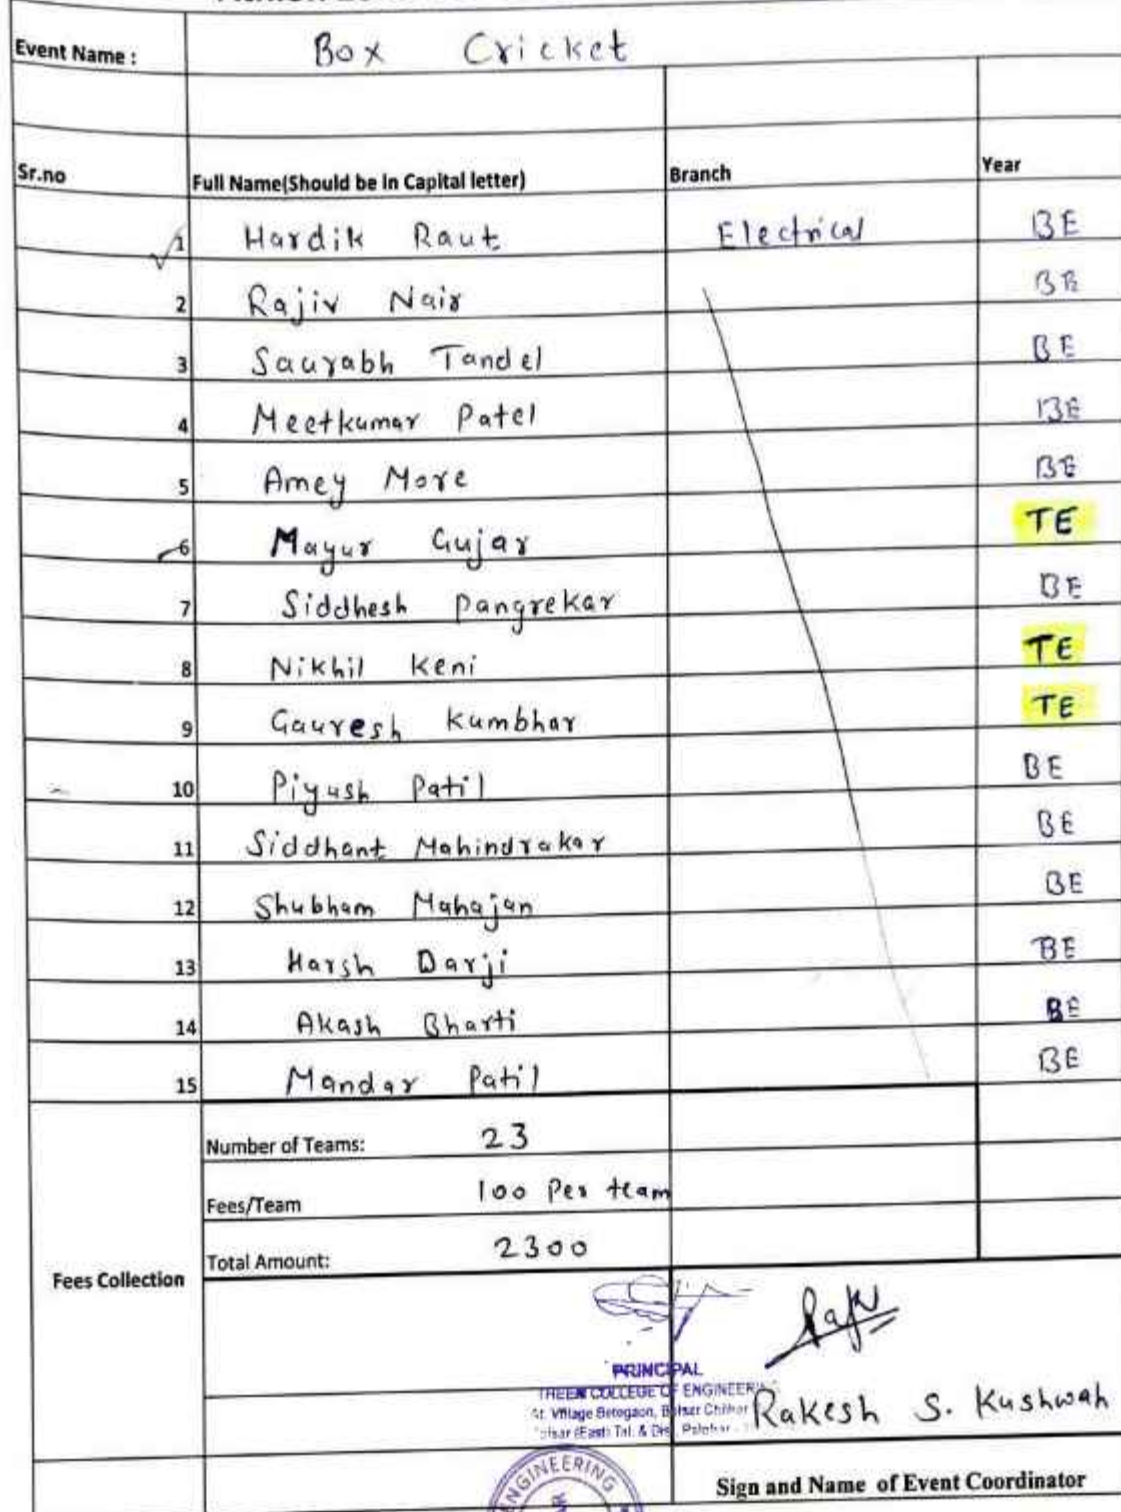 Event Name : Box Cricket
Sr.no Full Name(Should be In Capital letter) Branch Year
1 Hardik Raut Electrical BE
2 Rajiv Nair BE
3 Saurabh Tandel BE
4 Meetkumar Patel BE
5 Amey More BE
6 Mayur Gujar TE
7 Siddhesh Pangrekar BE
8 Nikhil Keni TE
9 Gauresh Kumbhar TE
10 Piyush Patil BE
11 Siddhant Mahindrakar BE
12 Shubham Mahajan BE
13 Harsh Darji BE
14 Akash Bharti BE
15 Mandar Patil BE
Number of Teams: 23
Fees/Team 100 Per team
Total Amount: 2300
Fees Collection
PRINCIPAL
THEEM COLLEGE OF ENGINEERING
At. Village Betegaon, Boisar Chilhar
Boisar (East) Tal. & Dist. Palghar
Rakesh S. Kushwah
ENGINEERING
Sign and Name of Event Coordinator